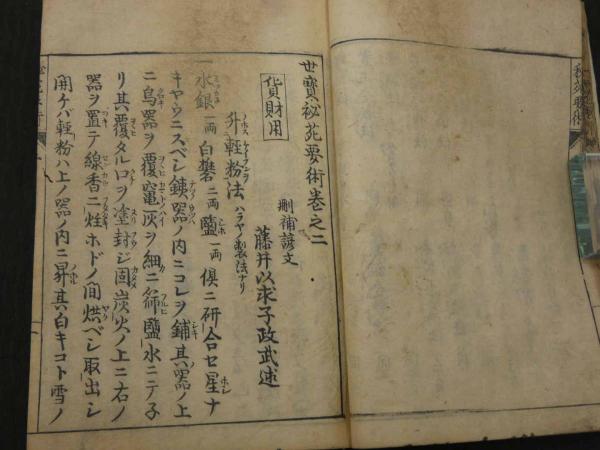 世寶秘苑要術巻之二
刪補諺文
藤井以求子政武述
貨財用
升輕粉法 ハラヤノ製法ナリ
一水銀一両白礬二両鹽一両倶ニ研合セ星ナ
キヤウニスベシ鐵器ノ内ニコレヲ鋪其器ノ上
ニ烏器ヲ覆竈灰ヲ細ニ篩鹽水ニテ子
リ其覆タル口ヲ塗封ジ固炭火ノ上ニ右ノ
器ヲ置テ線香二炷ホドノ間烘ベシ取出シ
開ケバ輕粉ハ上ノ器ノ内ニ昇其白キコト雪ノ